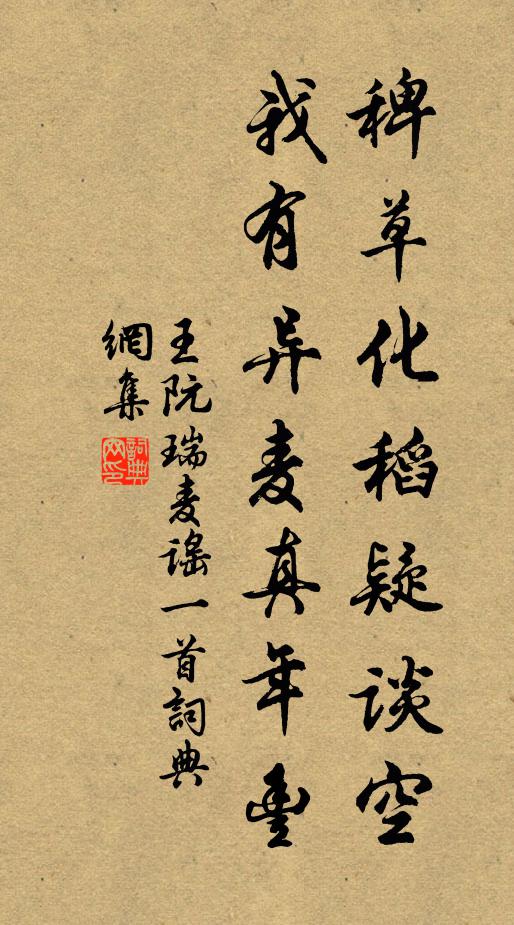 稗草化稻疑谈空
我有异麦真年豐
王阮瑞麦谣一首詞典
網集
詞典网印